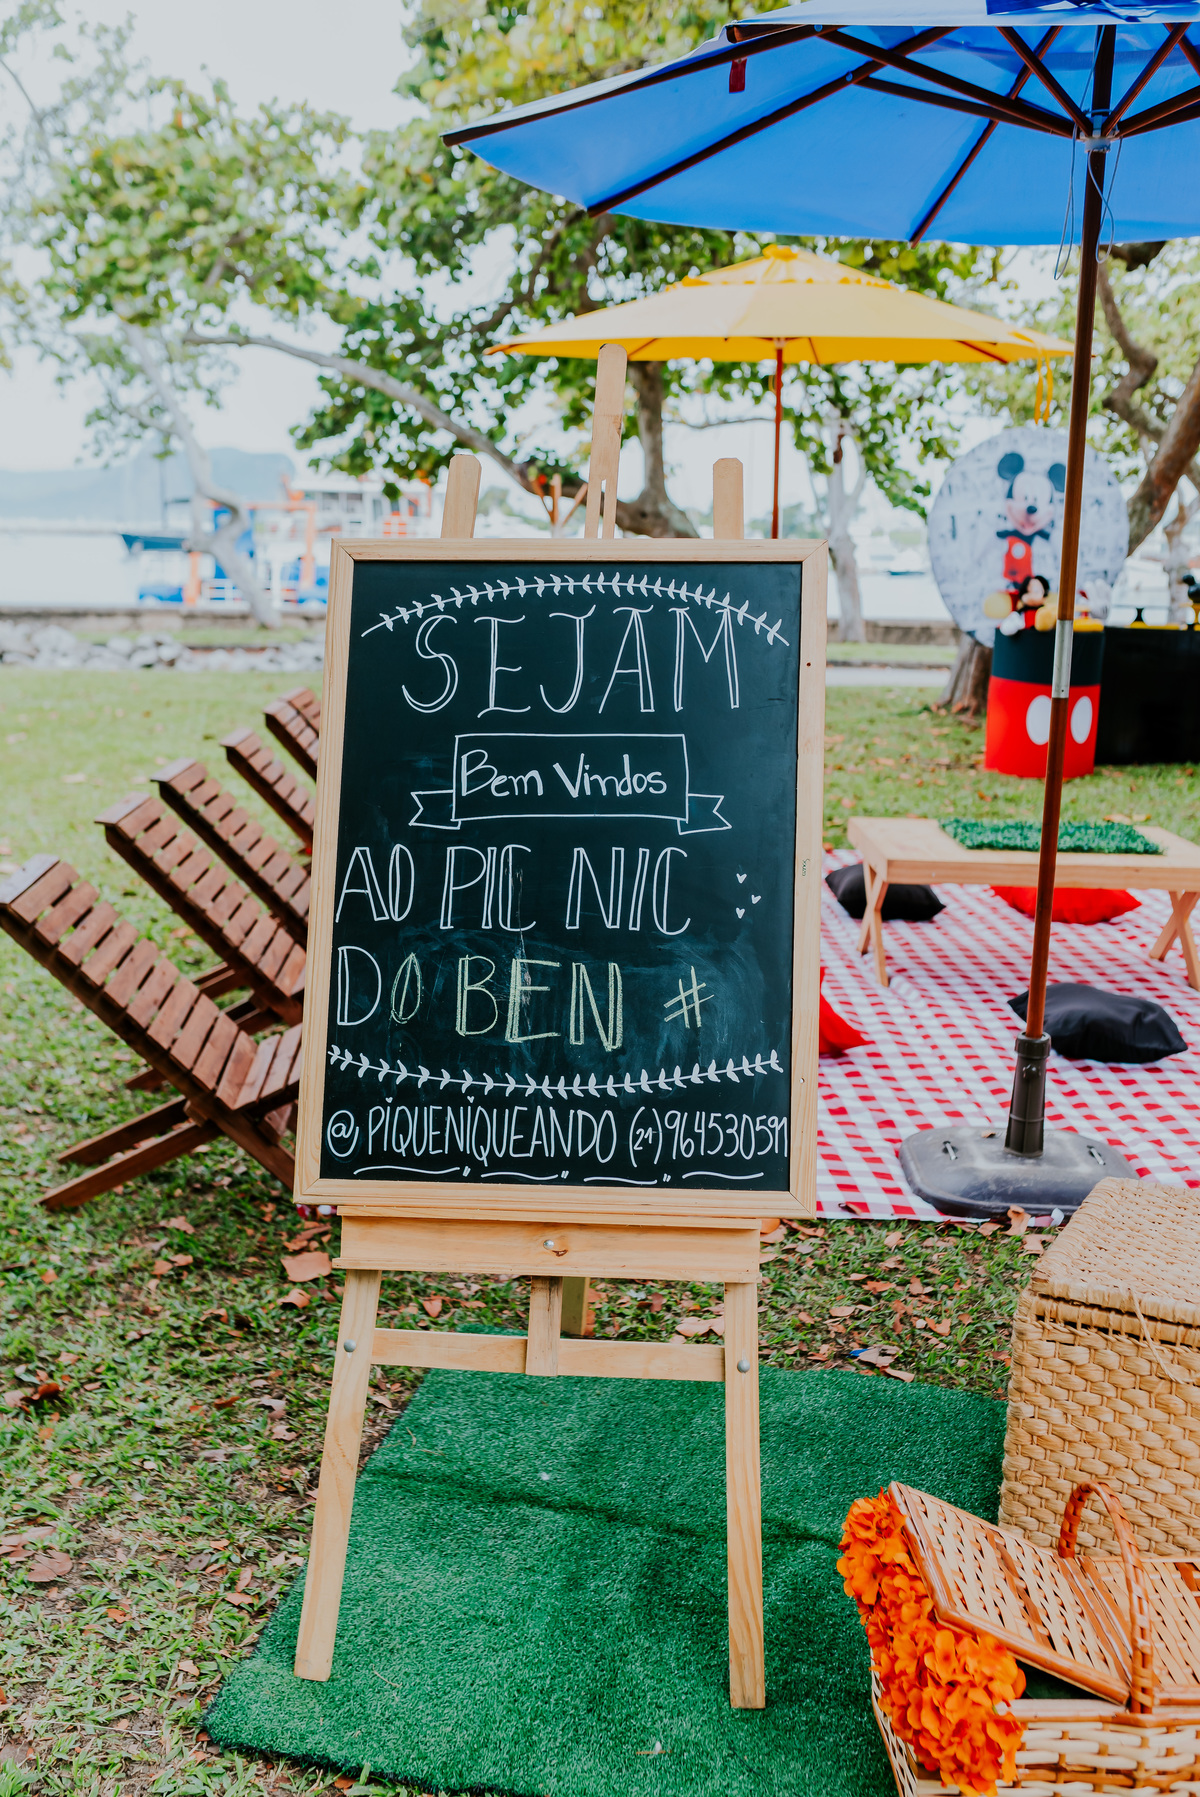 SEJAM
Bem Vindos
AO PIC NIC
DO BEN #
@PIQUENIQUEANDO (21)964530591